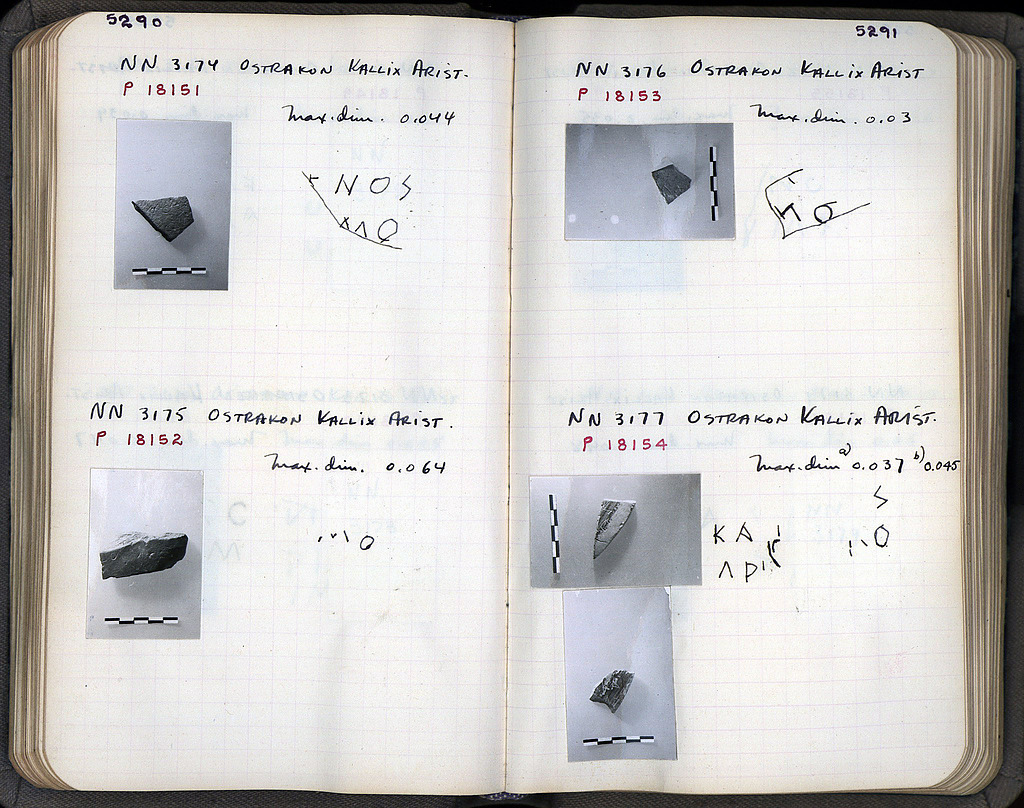 5290
NN 3174 OSTRAKON KALLIX ARIST.
P 18151
Max. dim. 0.044
ΝΟS
ΛΟ
NN 3175 OSTRAKON KALLIX ARIST.
P 18152
Max. dim. 0.064
Ο
5291
NN 3176 OSTRAKON KALLIX ARIST
P 18153
Max. dim. 0.03
Ο
NN 3177 OSTRAKON KALLIX ARIST.
P 18154
Max. dim a) 0.037 b) 0.045
S
ΚΑ
Ο
ΛΡΙ